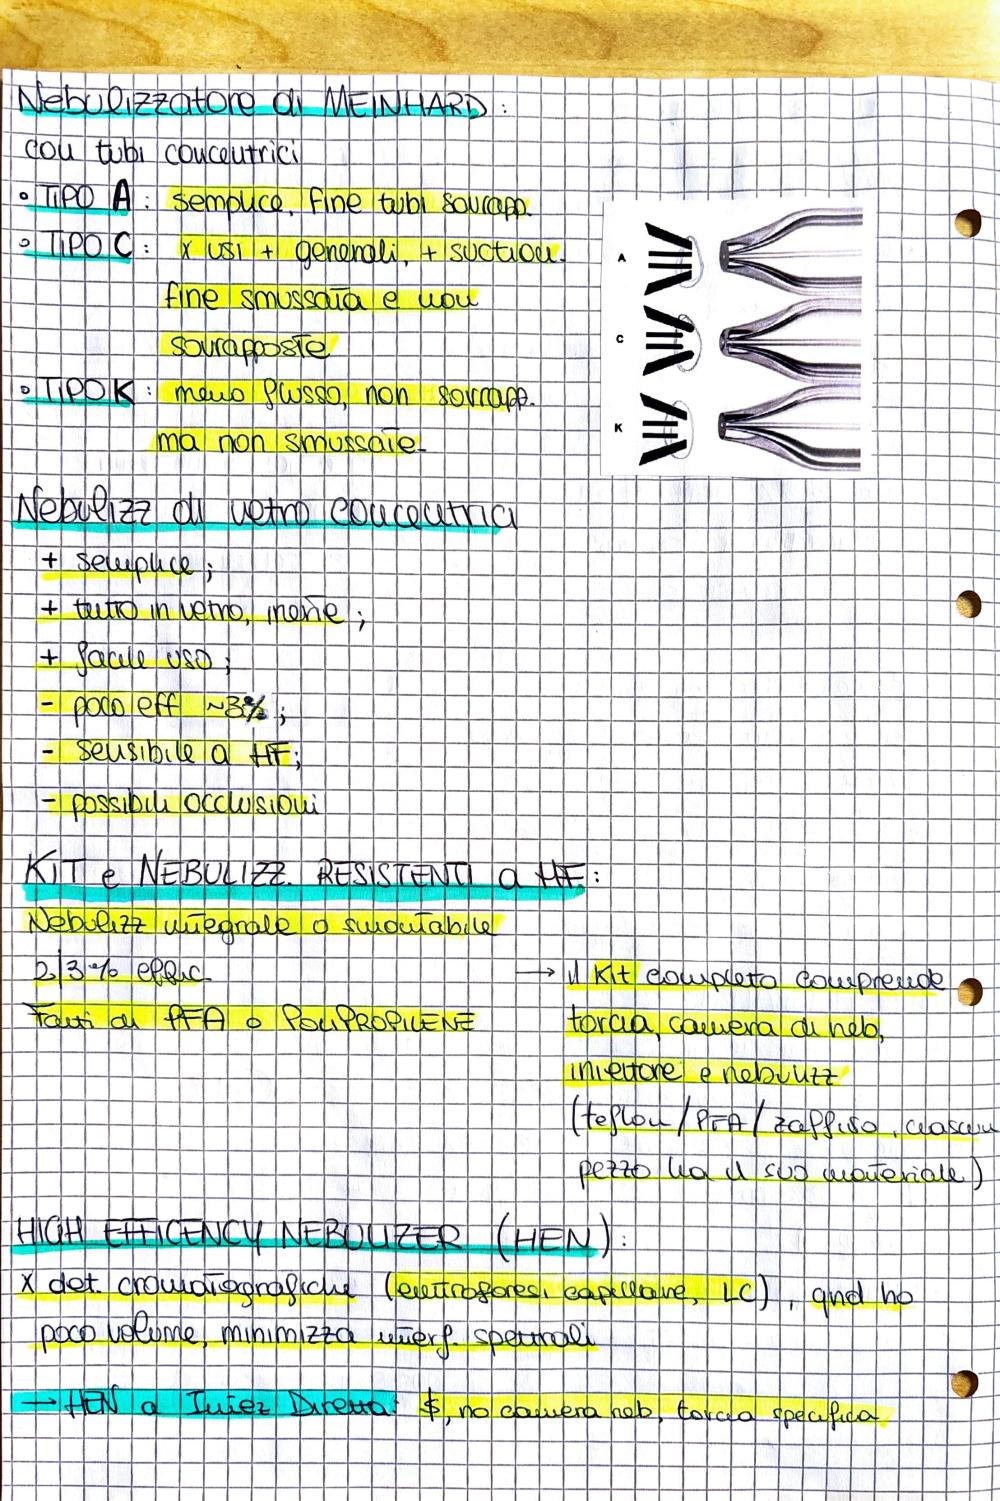 Nebulizzatore di MEINHARD:
con tubi concentrici
• TIPO A: semplice, fine tubi sovrapp.
• TIPO C: x usi + generali, + suction.
fine smussata e non
sovrapposte
• TIPO K: meno flusso, non sovrapp.
ma non smussate.
A
C
K
Nebulizz di vetro concentrici
+ semplice;
+ tutto in vetro, inerte;
+ facile uso;
- poco eff ~3%;
- sensibile a HF;
- possibili occlusioni
KIT e NEBULIZZ. RESISTENTI a HF:
Nebulizz integrale o smontabile
2/3% effic.
Fatti di PFA o POLIPROPILENE
→ il Kit completo comprende
torcia, camera di neb,
iniettore e nebulizz
(teflon/PFA/zaffiro, ciascun
pezzo ha il suo materiale)
HIGH EFFICENCY NEBULIZER (HEN):
x det. cromatografiche (elettroforesi capillare, LC), qnd ho
poco volume, minimizza interf. spettrali
→ HEN a Iniez Diretta: $, no camera neb, torcia specifica